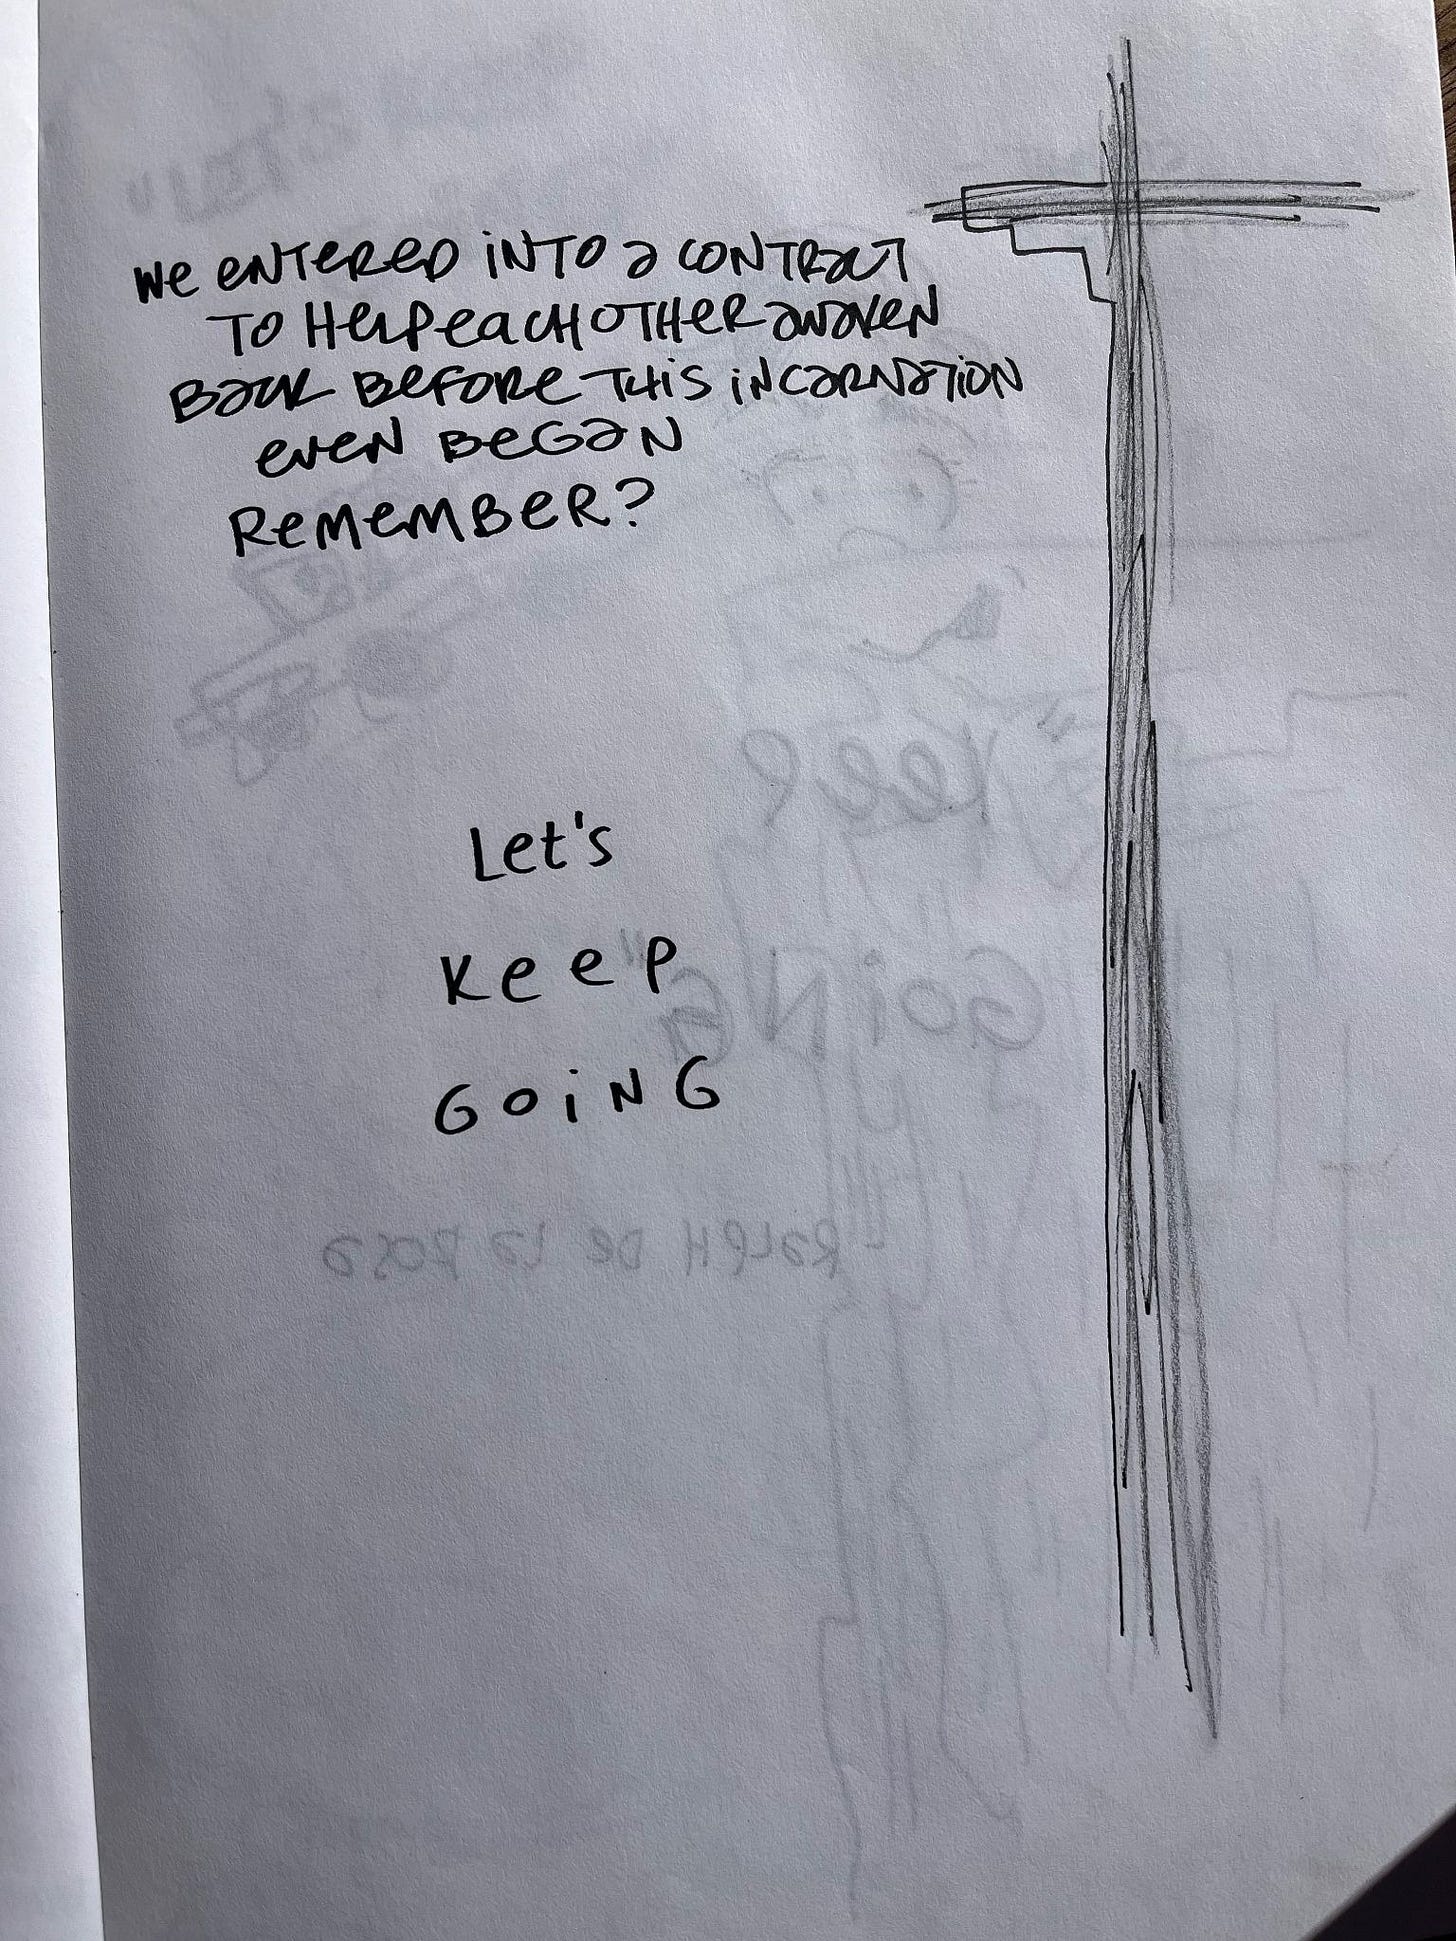 We entered into a contract
to help each other awaken
back before this incarnation
even began
Remember?
Let's
Keep
Going
"Keep
Going"
- Ralph De La Rosa